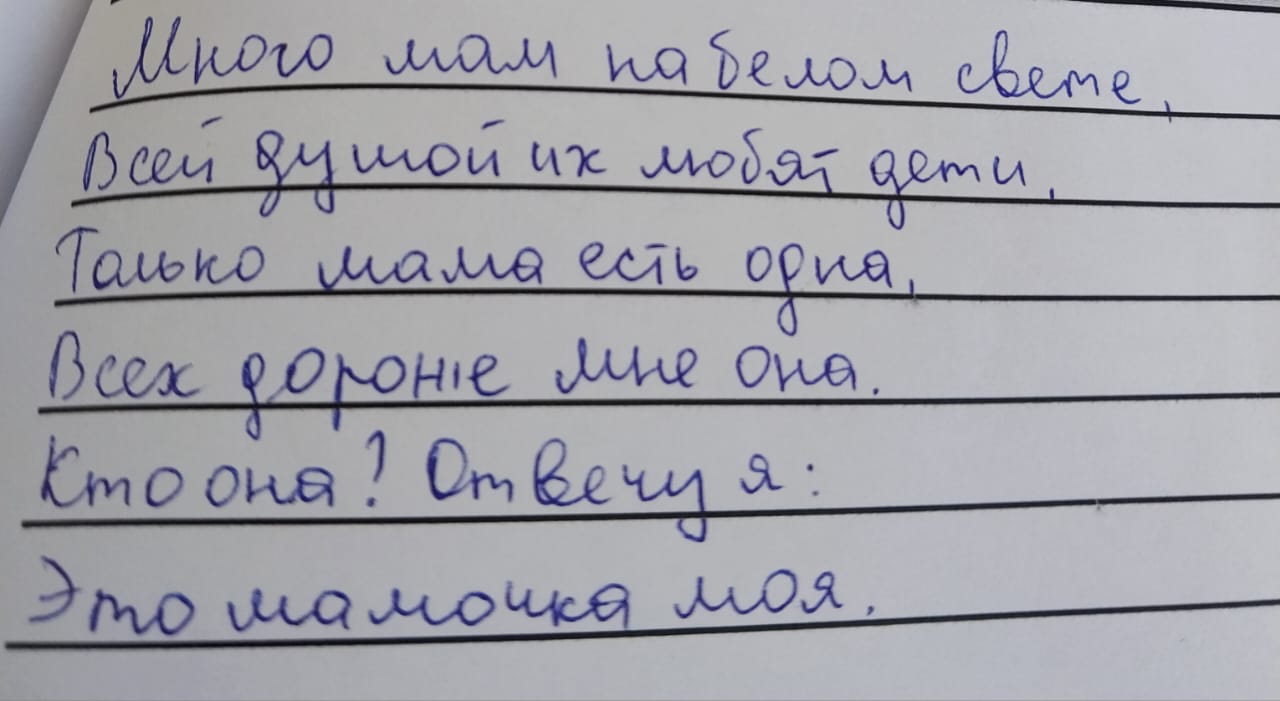 Много мам на белом свете,
Всей душой их любят дети.
Только мама есть одна,
Всех дороже мне она.
Кто она? Отвечу я:
Это мамочка моя.